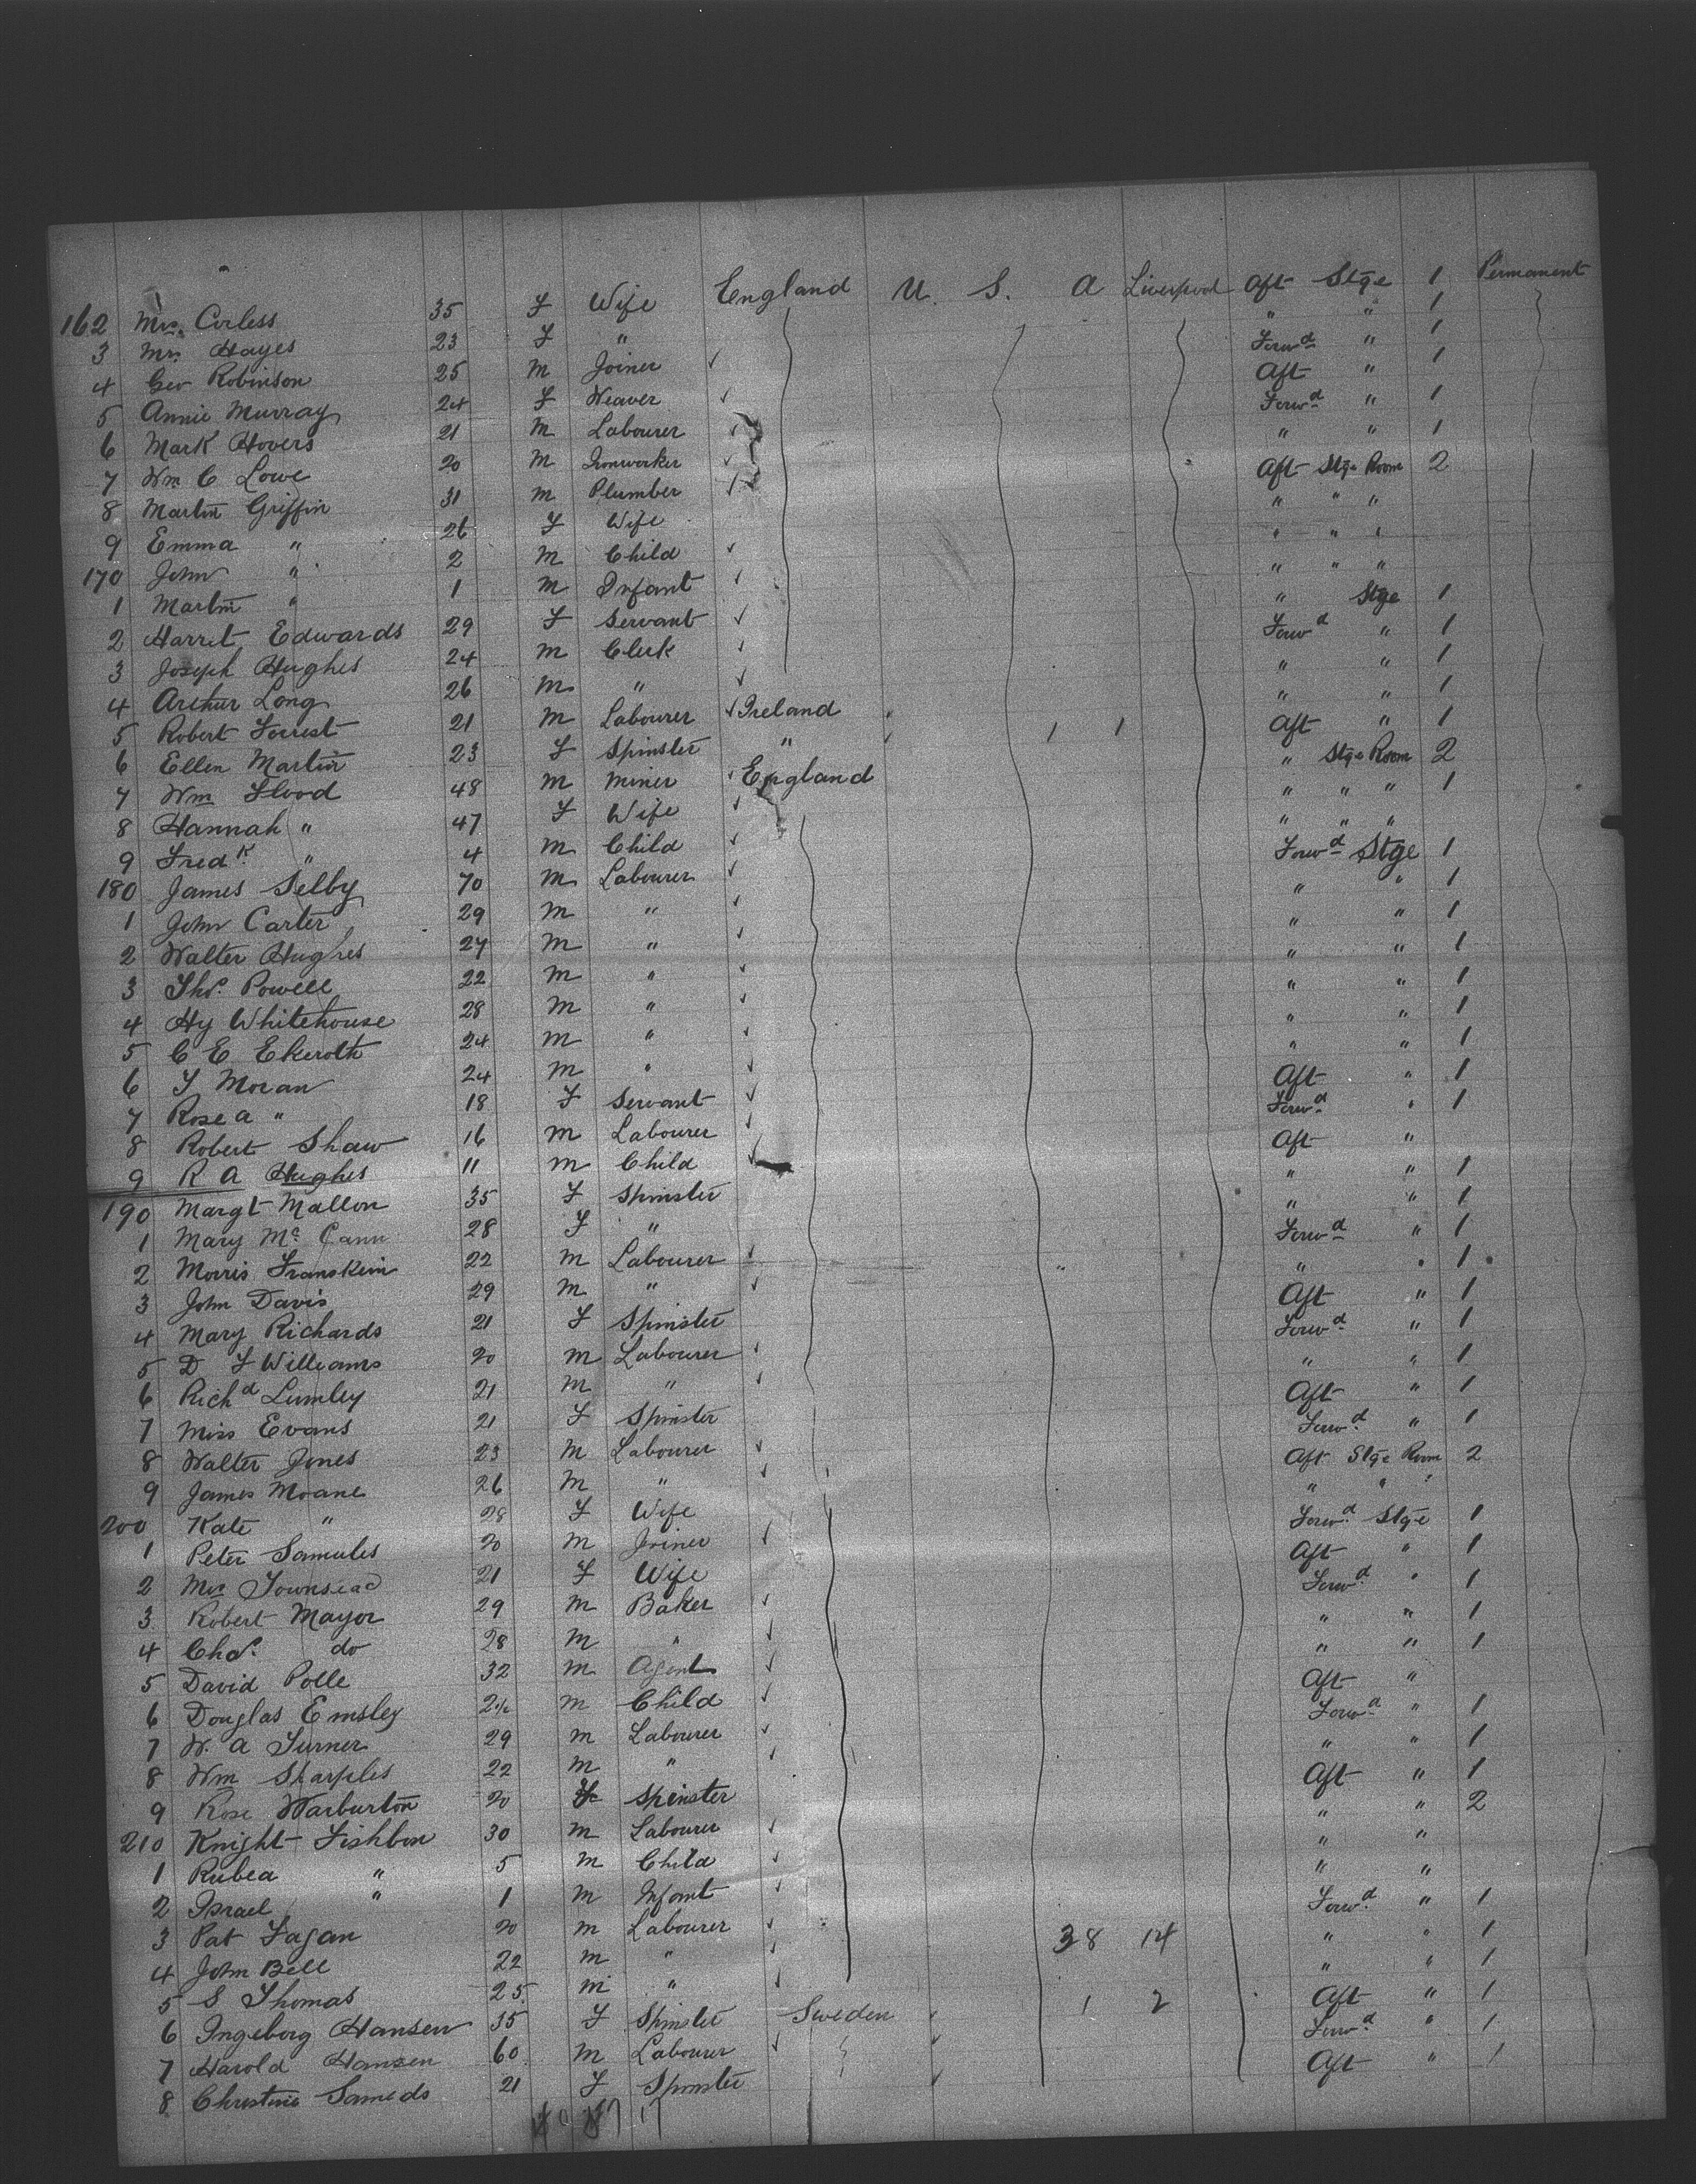 162 Mrs. Corless 35 F Wife England U. S. A Liverpool Aft Stge 1 Permanent
3 Mrs. Hayes 23 F " " " 1
4 Geo Robinson 25 M Joiner Forwd " 1
5 Annie Murray 24 F Weaver Aft " 1
6 Mark Hovers 21 M Labourer Forwd " 1
7 Wm C Lowe 20 M Ironworker " " 1
8 Martin Griffin 31 M Plumber Aft Stge Room 2
9 Emma " 26 F Wife " " "
170 John " 2 M Child " " "
1 Martin " 1 M Infant " " "
2 Harret Edwards 29 F Servant " Stge 1
3 Joseph Hughes 24 M Clerk Forwd " 1
4 Arthur Long 26 M " " " 1
5 Robert Forrest 21 M Labourer Ireland " " 1
6 Ellen Martin 23 F Spinster " 1 1 Aft " 1
7 Wm Flood 48 M Miner England " Stge Room 2
8 Hannah " 47 F Wife " " " 1
9 Fredk " 4 M Child " " "
180 James Selby 70 M Labourer Forwd Stge 1
1 John Carter 29 M " " " 1
2 Walter Hughes 27 M " " " 1
3 Thos. Powell 22 M " " " 1
4 Hy Whitehouse 28 M " " " 1
5 C E Ekeroth 24 M " " " 1
6 T Moran 24 M " " " 1
7 Rose a " 18 F Servant Aft " 1
8 Robert Shaw 16 M Labourer Forwd " 1
9 R A Hughes 11 M Child Aft "
190 Margt Mallon 35 F Spinster " " 1
1 Mary Mc Cann 28 F " " " 1
2 Morris Franskein 22 M Labourer Forwd " 1
3 John Davis 29 M " " " 1
4 Mary Richards 21 F Spinster Aft " 1
5 D F Williams 20 M Labourer Forwd " 1
6 Richd Lumley 21 M " " " 1
7 Miss Evans 21 F Spinster Aft " 1
8 Walter Jones 23 M Labourer Forwd " 1
9 James Moane 26 M " Aft Stge Room 2
200 Kate " 28 F Wife " " "
1 Peter Samules 20 M Joiner Forwd Stge 1
2 Mrs Townsead 21 F Wife Aft " 1
3 Robert Mayor 29 M Baker Forwd " 1
4 Chas. do 28 M " " " 1
5 David Polle 32 M Agent " " 1
6 Douglas Emsley M Child Aft "
7 W. A Turner 29 M Labourer Forwd " 1
8 Wm Sharples 22 M " " " 1
9 Rose Warburton 20 F Spinster Aft " 1
210 Knight Fishbon 30 M Labourer " " 2
1 Rubea " 5 M Child " "
2 Israel " 1 M Infant " "
3 Pat Fagan 20 M Labourer Forwd " 1
4 John Bell 22 M " 38 14 " " 1
5 S Thomas 25 M " " " 1
6 Ingeborg Hansen 35 F Spinster Sweden 1 2 Aft " 1
7 Harold Hansen 60 M Labourer Forwd " 1
8 Christine Sameds 21 F Spinster Aft " 1